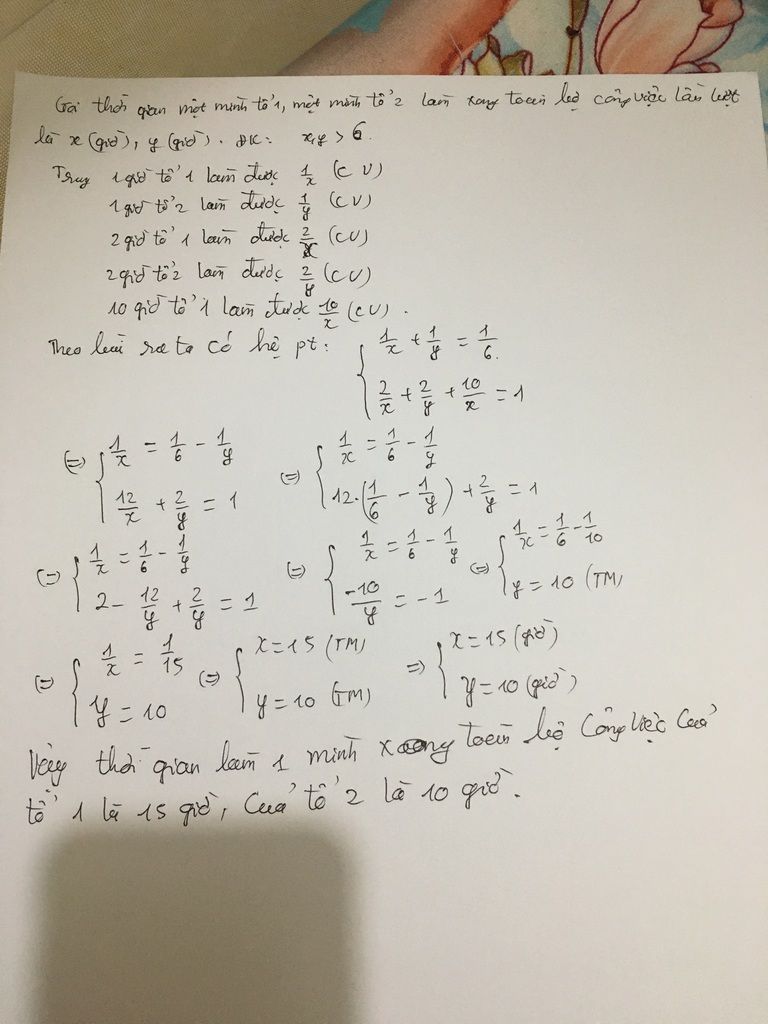 Gọi thời gian một mình tổ 1, một mình tổ 2 làm xong toàn bộ công việc lần lượt
là x (giờ), y (giờ). ĐK: x,y > 6.
1 giờ tổ 1 làm được 1/x (CV)
1 giờ tổ 2 làm được 1/y (CV)
2 giờ tổ 1 làm được 2/x (CV)
2 giờ tổ 2 làm được 2/y (CV)
10 giờ tổ 1 làm được 10/x (CV).
Theo bài ra ta có hệ pt: { 1/x + 1/y = 1/6.
2/x + 2/y + 10/x = 1
(=) { 1/x = 1/6 - 1/y (=) { 1/x = 1/6 - 1/y
12/x + 2/y = 1 12.(1/6 - 1/y) + 2/y = 1
(=) { 1/x = 1/6 - 1/y (=) { 1/x = 1/6 - 1/y (=) { 1/x = 1/6 - 1/10
2 - 12/y + 2/y = 1 -10/y = -1 y = 10 (TM)
(=) { 1/x = 1/15 (=) { x = 15 (TM) => { x = 15 (giờ)
y = 10 y = 10 (TM) y = 10 (giờ)
Vậy thời gian làm 1 mình xong toàn bộ công việc của
tổ 1 là 15 giờ, của tổ 2 là 10 giờ.